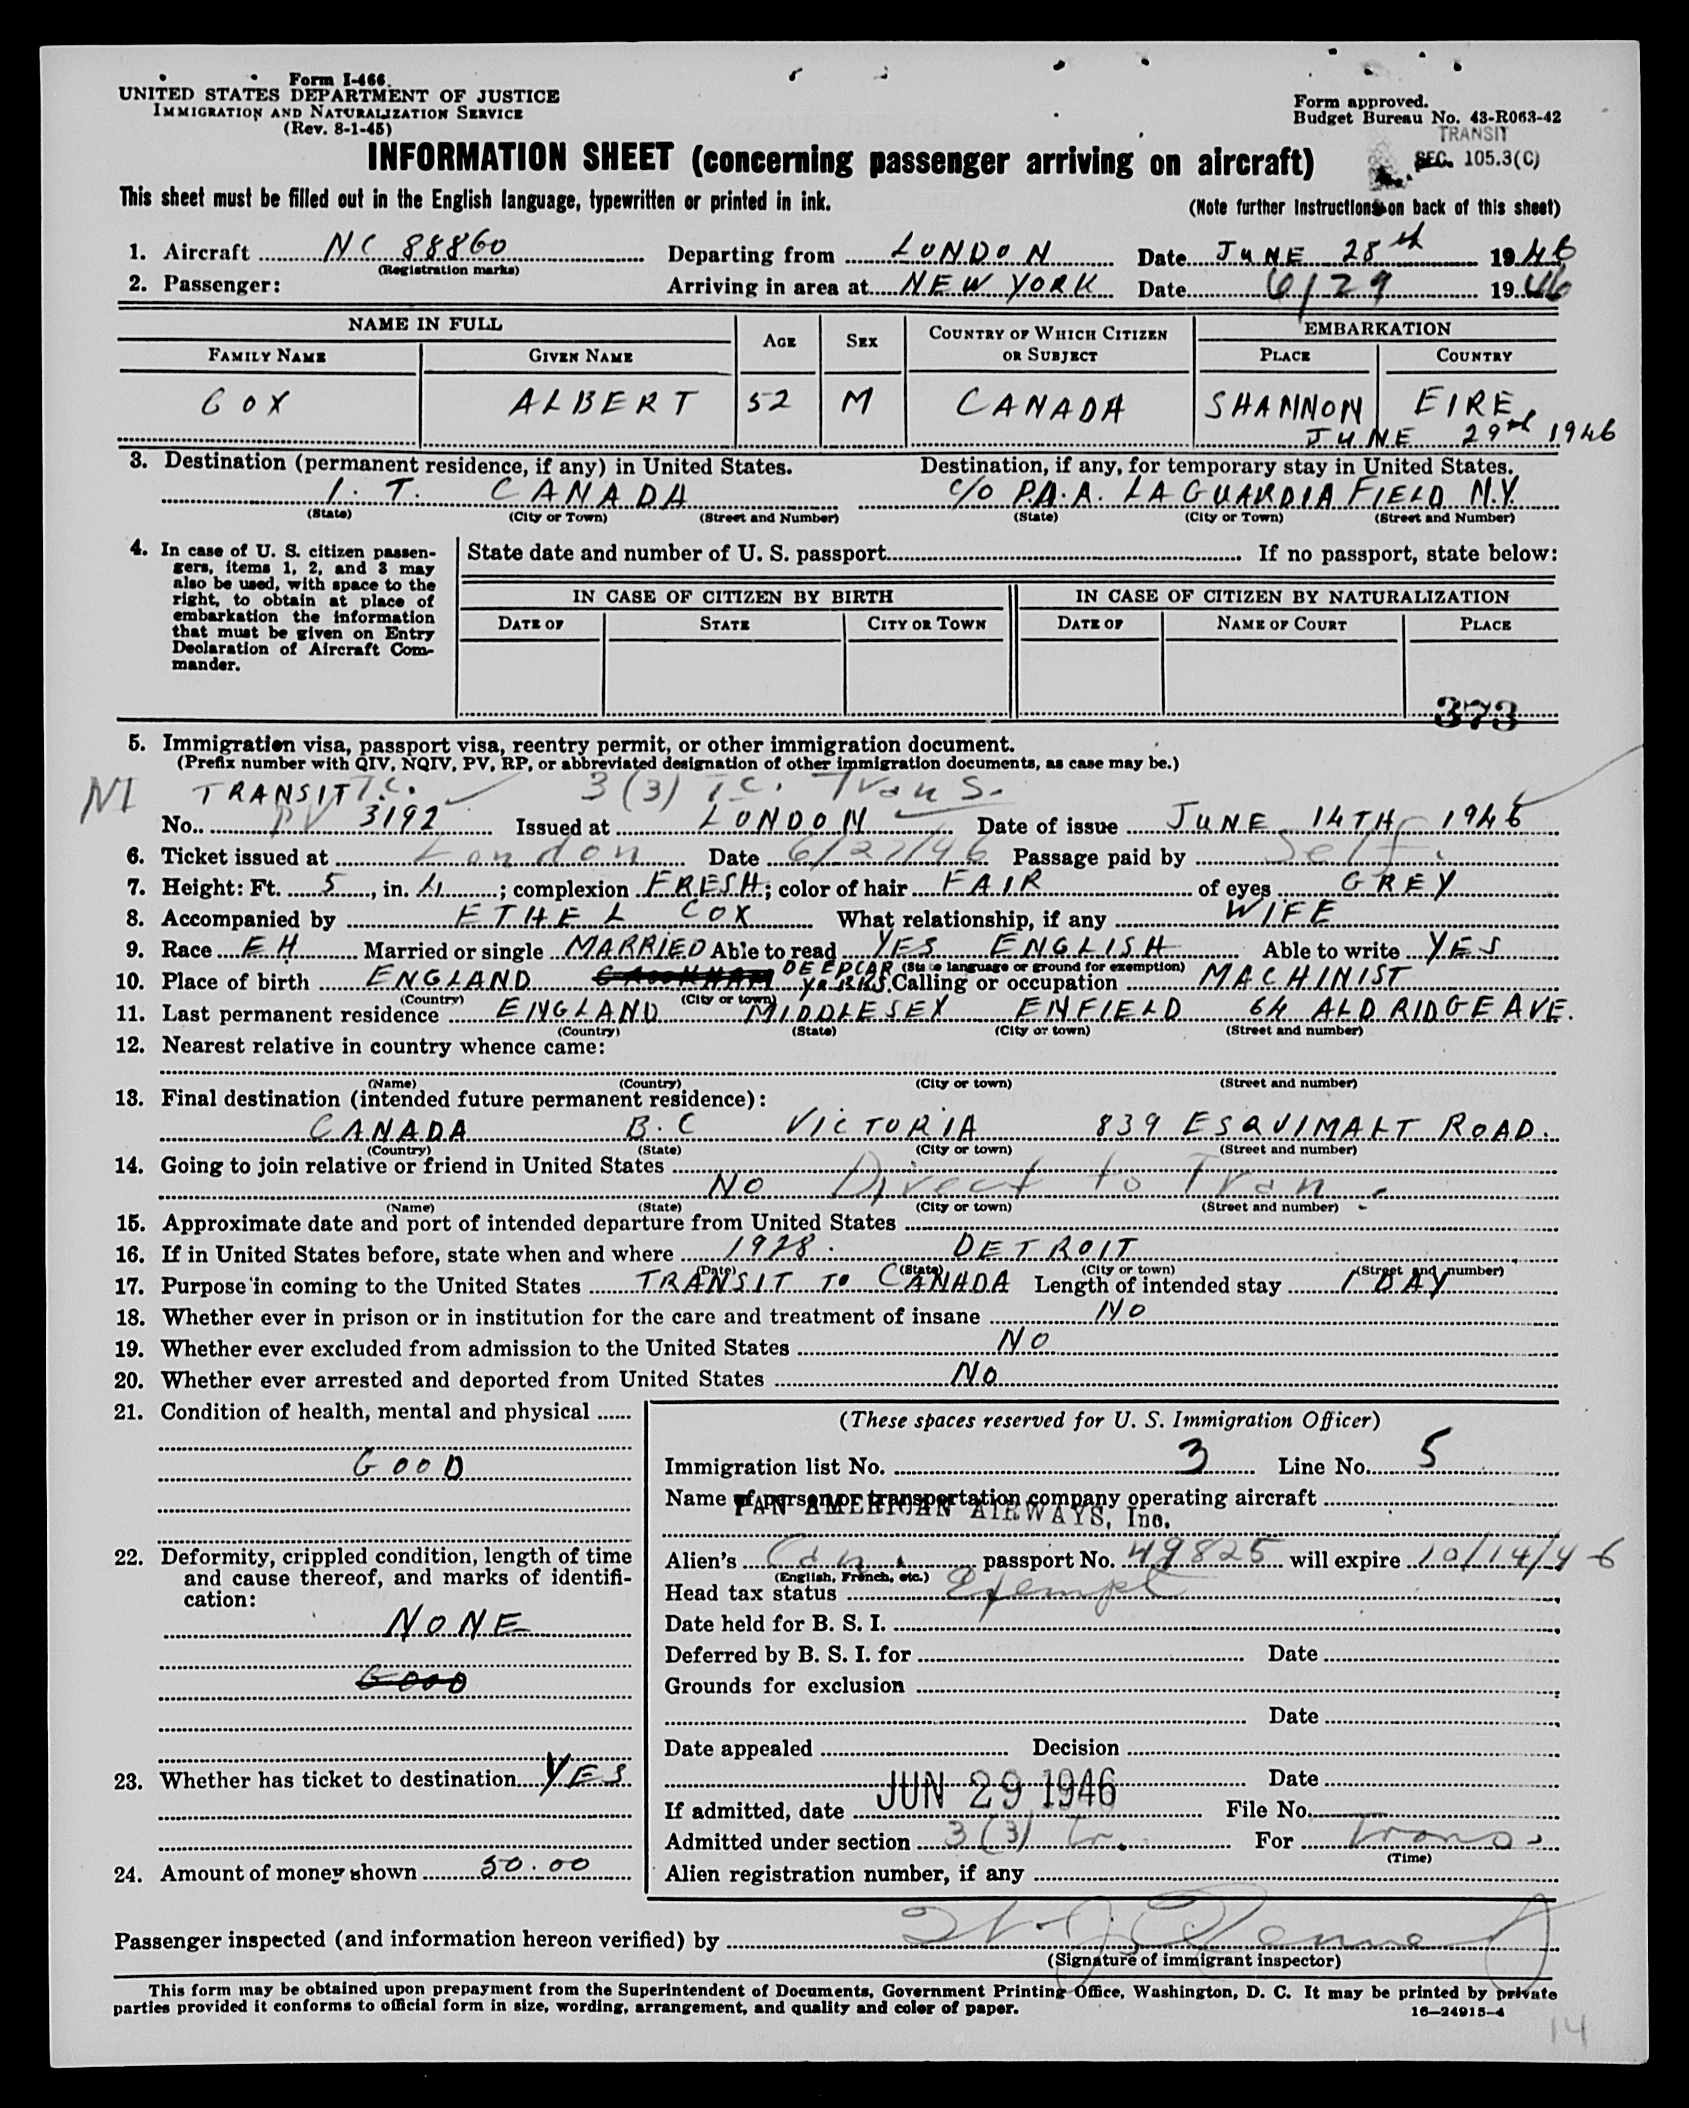 Form I-466
UNITED STATES DEPARTMENT OF JUSTICE
IMMIGRATION AND NATURALIZATION SERVICE
(Rev. 8-1-45)
Form approved.
Budget Bureau No. 43-R063-42
TRANSIT
SEC. 105.3(C)
INFORMATION SHEET (concerning passenger arriving on aircraft)
This sheet must be filled out in the English language, typewritten or printed in ink.
(Note further instructions on back of this sheet)
1. Aircraft NC 88860 Departing from LONDON Date JUNE 28th 1946
(Registration marks)
2. Passenger: Arriving in area at NEW YORK Date 6/29 1946
NAME IN FULL AGE SEX COUNTRY OF WHICH CITIZEN OR SUBJECT EMBARKATION
FAMILY NAME GIVEN NAME PLACE COUNTRY
COX ALBERT 52 M CANADA SHANNON EIRE
JUNE 29th 1946
3. Destination (permanent residence, if any) in United States. Destination, if any, for temporary stay in United States.
I. T. CANADA c/o P.A.A. LA GUARDIA FIELD N.Y.
(State) (City or Town) (Street and Number) (State) (City or Town) (Street and Number)
4. In case of U. S. citizen passengers, items 1, 2, and 3 may also be used, with space to the right, to obtain at place of embarkation the information that must be given on Entry Declaration of Aircraft Commander.
State date and number of U. S. passport If no passport, state below:
IN CASE OF CITIZEN BY BIRTH IN CASE OF CITIZEN BY NATURALIZATION
DATE OF STATE CITY OR TOWN DATE OF NAME OF COURT PLACE
373
5. Immigration visa, passport visa, reentry permit, or other immigration document.
(Prefix number with QIV, NQIV, PV, RP, or abbreviated designation of other immigration documents, as case may be.)
NI TRANSIT T.C. 3(3) T.C. Trans.
No. PV 3192 Issued at LONDON Date of issue JUNE 14TH 1946
6. Ticket issued at London Date 6/27/46 Passage paid by Self.
7. Height: Ft. 5, in. 11; complexion FRESH; color of hair FAIR of eyes GREY
8. Accompanied by ETHEL COX What relationship, if any WIFE
9. Race EH Married or single MARRIED Able to read YES ENGLISH Able to write YES
(State language or ground for exemption)
10. Place of birth ENGLAND DEEPCAR YORKS. Calling or occupation MACHINIST
(Country) (City or town)
11. Last permanent residence ENGLAND MIDDLESEX ENFIELD 64 ALDRIDGE AVE.
(Country) (State) (City or town) (Street and number)
12. Nearest relative in country whence came:
(Name) (Country) (City or town) (Street and number)
13. Final destination (intended future permanent residence):
CANADA B.C VICTORIA 839 ESQUIMALT ROAD.
(Country) (State) (City or town) (Street and number)
14. Going to join relative or friend in United States
NO Direct to Tran.
(Name) (State) (City or town) (Street and number)
15. Approximate date and port of intended departure from United States
16. If in United States before, state when and where 1928. DETROIT
(Date) (State) (City or town) (Street and number)
17. Purpose in coming to the United States TRANSIT TO CANADA Length of intended stay 1 DAY
18. Whether ever in prison or in institution for the care and treatment of insane NO
19. Whether ever excluded from admission to the United States NO
20. Whether ever arrested and deported from United States NO
21. Condition of health, mental and physical
GOOD
22. Deformity, crippled condition, length of time
and cause thereof, and marks of identification:
NONE
GOOD
23. Whether has ticket to destination YES
24. Amount of money shown 50.00
(These spaces reserved for U. S. Immigration Officer)
Immigration list No. 3 Line No. 5
Name of person or transportation company operating aircraft
PAN AMERICAN AIRWAYS, Inc.
Alien's Can. passport No. 49825 will expire 10/14/46
(English, French, etc.)
Head tax status Exempt
Date held for B. S. I.
Deferred by B. S. I. for Date
Grounds for exclusion
Date
Date appealed Decision
Date
If admitted, date JUN 29 1946 File No.
Admitted under section 3(3) tr. For Trans.
(Time)
Alien registration number, if any
Passenger inspected (and information hereon verified) by
(Signature of immigrant inspector)
This form may be obtained upon prepayment from the Superintendent of Documents, Government Printing Office, Washington, D. C. It may be printed by private
parties provided it conforms to official form in size, wording, arrangement, and quality and color of paper.
16—24915-4
14